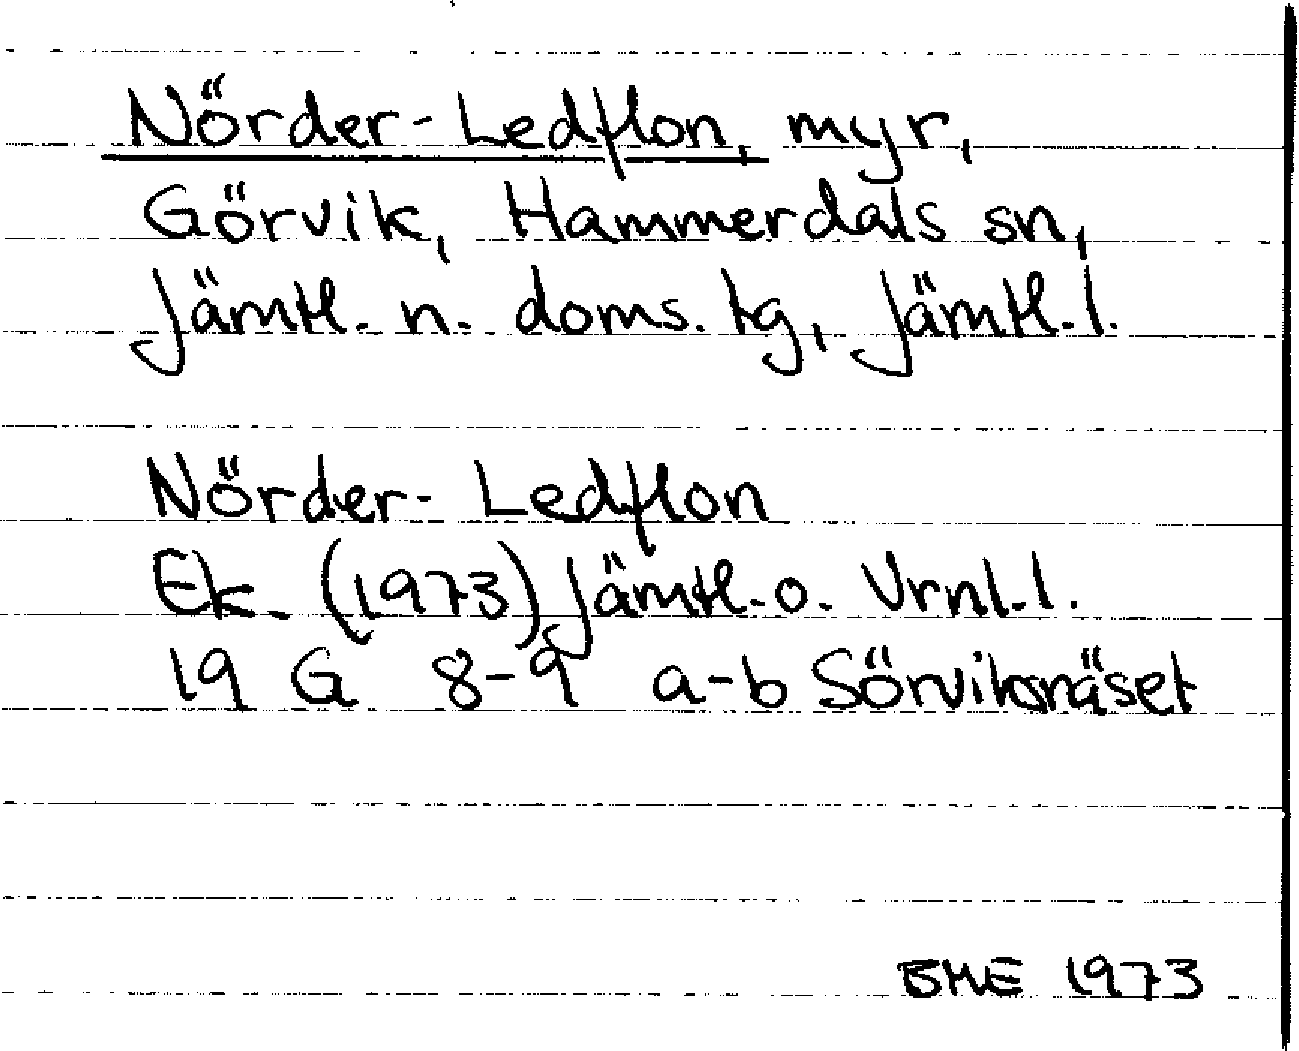 Nörder-Ledflon, myr,
Görvik, Hammerdals sn,
Jämtl. n. doms. tg, Jämtl. l.
Nörder- Ledflon
Ek. (1973) Jämtl. o. Vrnl. l.
19 G 8-9 a-b Sörviksnäset
BME 1973